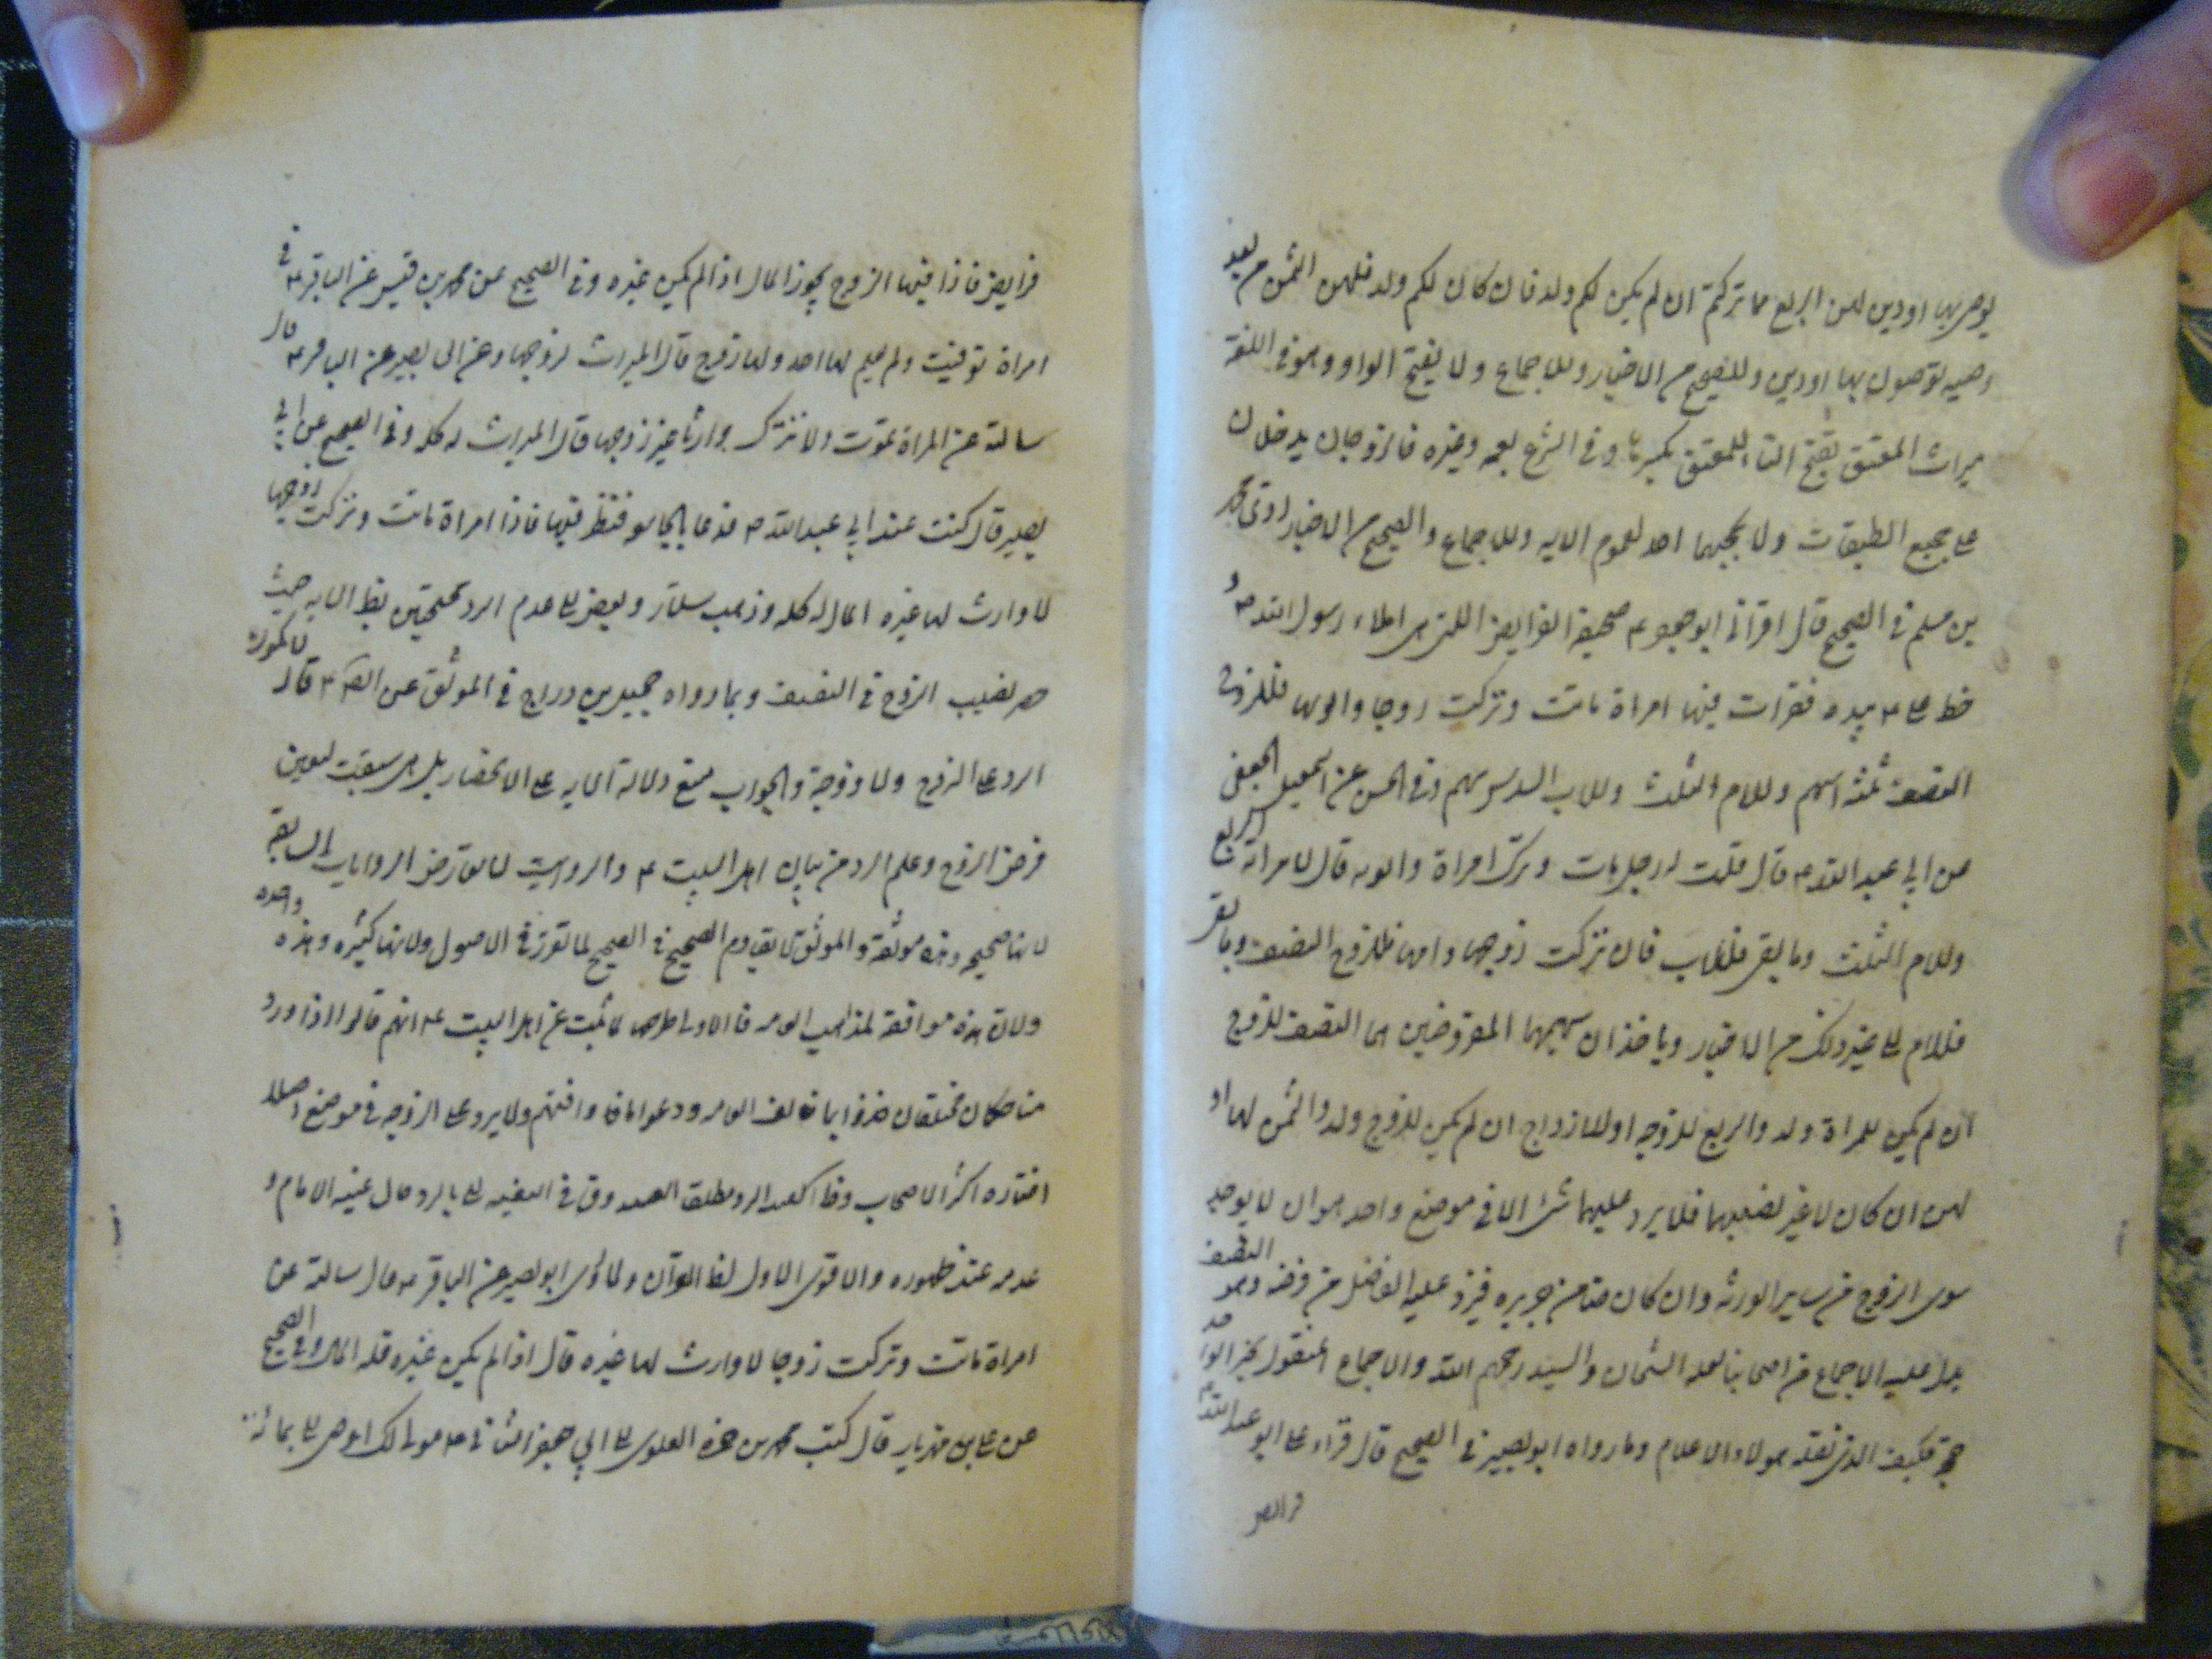 يوصى بها او دين لهن الربع مما تركتم ان لم يكن لكم ولد فان كان لكم ولد فلهن الثمن من بعد
وصيه توصون بها او دين وللصحيح من الاخبار وللاجماع ولا بفتح الواو وهو في اللغة
ميراث المعتق بفتح التاء للمعتق بكسرها وفي الشرع يعمه وغيره فالزوجان يدخلان
على جميع الطبقات ولا يحجبهما احد لعموم الايه وللاجماع والصحيح من الاخبار روى محمد
بن مسلم في الصحيح قال اقرأني ابو جعفر ع صحيفة الفرايض اللتي هي املاء رسول الله ص و
خط علي ع بيده فقرات فيها امراة ماتت وتركت زوجا وابويها فللزوج
النصف ثلثة اسهم وللام الثلث وللاب السدس سهم وفي الحسن عن اسمعيل الجعفي
عن ابي عبد الله ع قال قلت له رجل مات وترك امراة وابويه قال لامراته الربع
وللام الثلث وما بقي فللاب فان تركت زوجها وامها فللزوج النصف وما بقي
فللام الى غير ذلك من الاخبار وياخذان سهميهما المفروضين اما النصف للزوج
ان لم يكن للمراة ولد والربع للزوجه او للازواج ان لم يكن للزوج ولد والثمن لها او
لهن ان كان لا غير نصيبهما فلا يرد عليهما شئ الا في موضع واحد هو ان لا يوجد
سوى الزوج من ساير الورثه وان كان ضامن جريره فيرد عليه الفاضل من فرضه وهو النصف
يدل عليه الاجماع من اصحابنا نقله الشيخان والسيد رحمهم الله والاجماع المنقول بخبر الواحد
حجة فكيف الذي نقله هولاء الاعلام وما رواه ابو بصير في الصحيح قال قرا على ابو عبد الله ع
فرايض
فرايض فاذا فيها الزوج يحوز المال اذا لم يكن غيره وفي الصحيح عن محمد بن قيس عن الباقر ع في
امراة توفيت ولم يعلم لها احد ولها زوج قال الميراث لزوجها وعن ابي بصير عن الباقر ع قال
سالته عن المراة تموت ولا تترك وارثا غير زوجها قال الميراث له كله وفي الصحيح عن ابي
بصير قال كنت عند ابي عبد الله ع فدعا بالجامعه فنظر فيها فاذا امراة ماتت وتركت زوجها
لا وارث لها غيره المال له كله وذهب سلار وبعض الى عدم الرد محتجين بظ الايه حيث
حصر نصيب الزوج في النصف وبما رواه جميل بن دراج في الموثق عن الص ع قال لا يكون
الرد على الزوج ولا زوجة والجواب منع دلالة الايه على الانحصار بل هي سيقت لتعيين
فرض الزوج وعلم الرد من بيان اهل البيت ع والرواية لا تعارض الروايات السابقه
لانها صحيحه وهذه موثقة والموثق لا يقاوم الصحيح في الصحيح لما تقرر في الاصول ولانها كثيره وهذه واحده
ولان هذه موافقة لمذاهب العامه فالاولى طرحها لما ثبت عن اهل البيت ع انهم قالوا اذا ورد
منا حكمان مختلفان فخذوا بما خالف العامه ودعوا ما وافقهم ولا يرد على الزوجه في موضع اصلا
اختاره اكثر الاصحاب وقال بالرد مطلقا الصدوق في الفقيه الى بالرد حال غيبه الامام و
عدمه عند ظهوره والاقوى الاول لظ القران ولما روى ابو بصير عن الباقر ع قال سالته عن
امراة ماتت وتركت زوجا لا وارث لها غيره قال اذا لم يكن غيره فله المال وفي الصحيح
عن علي بن مهزيار قال كتب محمد بن حمزه العلوي الى ابي جعفر الثاني ع مولى لك اوصى الى بمائة